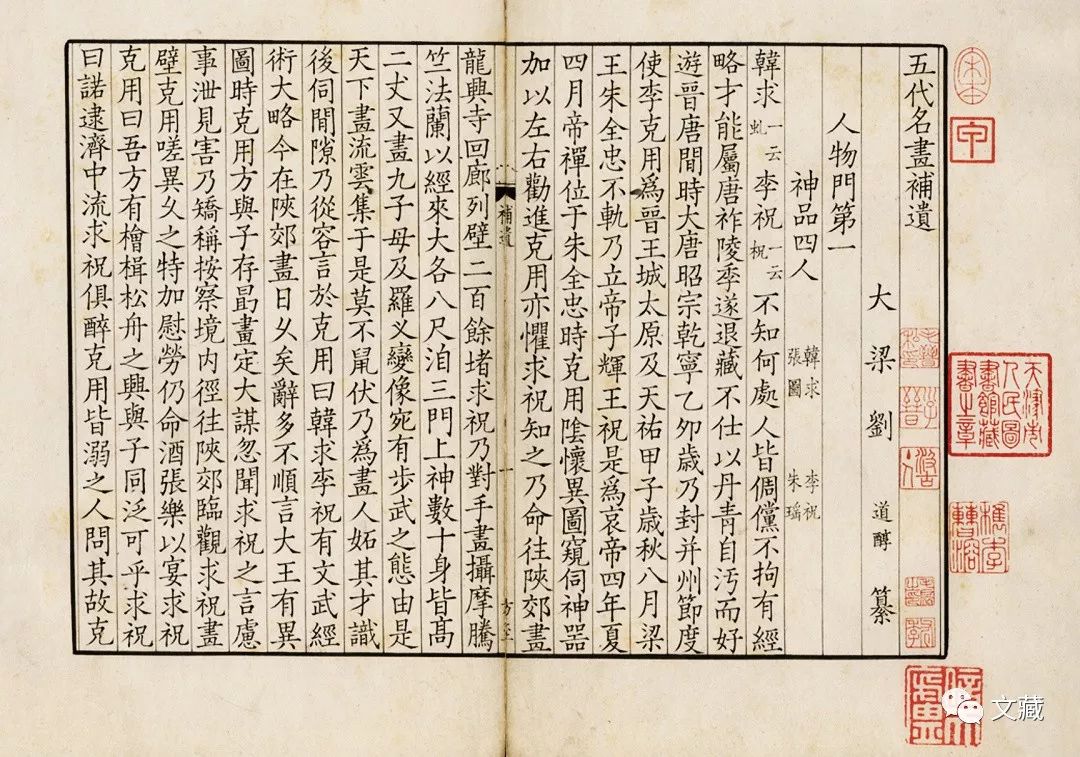 五代名畫補遺
大梁劉道醇纂
人物門第一
神品四人 韓求 李祝 張圖 朱瑤
韓求一云虬李祝一云祝不知何處人皆倜儻不拘有經
略才能屬唐祚陵季遂退藏不仕以丹青自汚而好
遊晉唐間時大唐昭宗乾寧乙夘歳乃封并州節度
使李克用爲晉王城太原及天祐甲子歳秋八月梁
王朱全忠不軌乃立帝子輝王祝是爲哀帝四年夏
四月帝禪位于朱全忠時克用陰懷異圖窺伺神器
加以左右勸進克用亦懼求祝知之乃命往陝郊畫
補遺
一
龍興寺回廊列壁二百餘堵求祝乃對手畫攝摩騰
竺法蘭以經來大各八尺洎三門上神數十身皆髙
二丈又畫九子母及羅义變像宛有步武之態由是
天下畫流雲集于是莫不鼠伏乃爲畫人妬其才識
後伺間隙乃從容言於克用曰韓求李祝有文武經
術大略今在陝郊畫日乆矣辭多不順言大王有異
圖時克用方與子存勗畫定大謀忽聞求祝之言慮
事泄見害乃矯稱按察境内徑往陝郊臨觀求祝畫
壁克用嗟異乆之特加慰勞仍命酒張樂以宴求祝
克用曰吾方有檜楫松舟之興與子同泛可乎求祝
曰諾逮濟中流求祝俱醉克用皆溺之人問其故克
天津市人民圖書館藏書之章
文藏